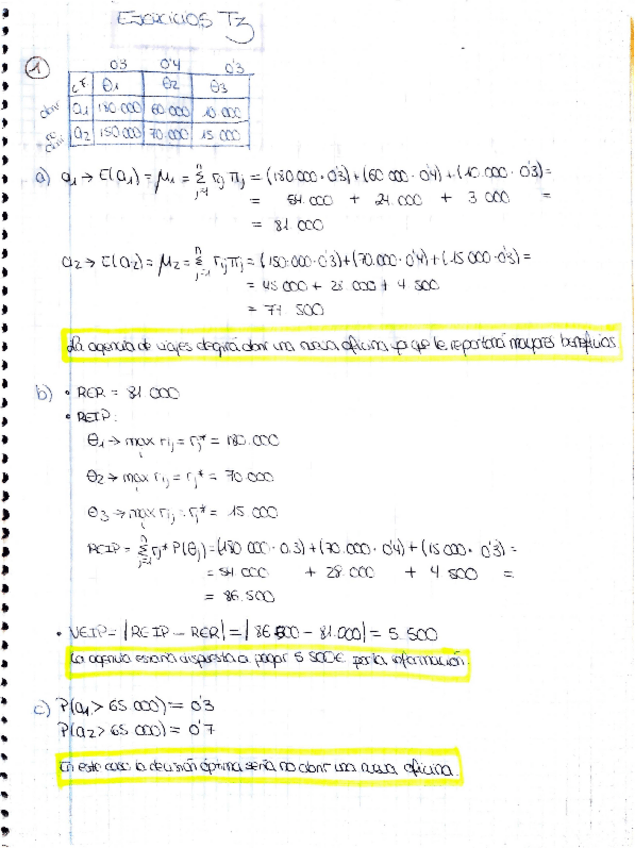 EJERCICIOS T3
1
0'3 0'4 0'3
θ1 θ2 θ3
abrir a1 180.000 60.000 10.000
no abrir a2 150.000 70.000 15.000
a) a1 → E(a1) = μ1 = Σ rij πj = (180.000 · 0'3) + (60.000 · 0'4) + (10.000 · 0'3) =
= 54.000 + 24.000 + 3.000 =
= 81.000
a2 → E(a2) = μ2 = Σ rij πj = (150.000 · 0'3) + (70.000 · 0'4) + (15.000 · 0'3) =
= 45.000 + 28.000 + 4.500
= 77.500
La agencia de viajes elegirá abrir una nueva oficina ya que le reportará mayores beneficios.
b) • RER = 81.000
• REIP:
θ1 → max rij = rj* = 180.000
θ2 → max rij = rj* = 70.000
θ3 → max rij = rj* = 15.000
REIP = Σ rj* P(θj) = (180.000 · 0.3) + (70.000 · 0'4) + (15.000 · 0'3) =
= 54.000 + 28.000 + 4.500 =
= 86.500
• VEIP = |REIP − RER| = |86.500 − 81.000| = 5.500
La agencia estaría dispuesta a pagar 5.500€ por la información.
c) P(a1 > 65.000) = 0'3
P(a2 > 65.000) = 0'7
En este caso la decisión óptima sería no abrir una nueva oficina.